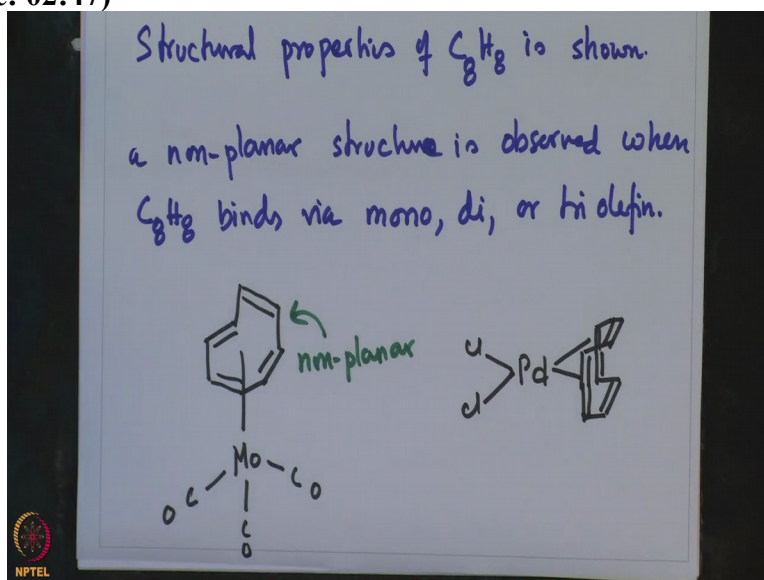 c: 02:47)
Structural properties of C8H8 is shown.
a non-planar structure is observed when
C8H8 binds via mono, di, or tri olefin.
non-planar
Cl
Pd
Cl
Mo
C O
O C
C
O
NPTEL